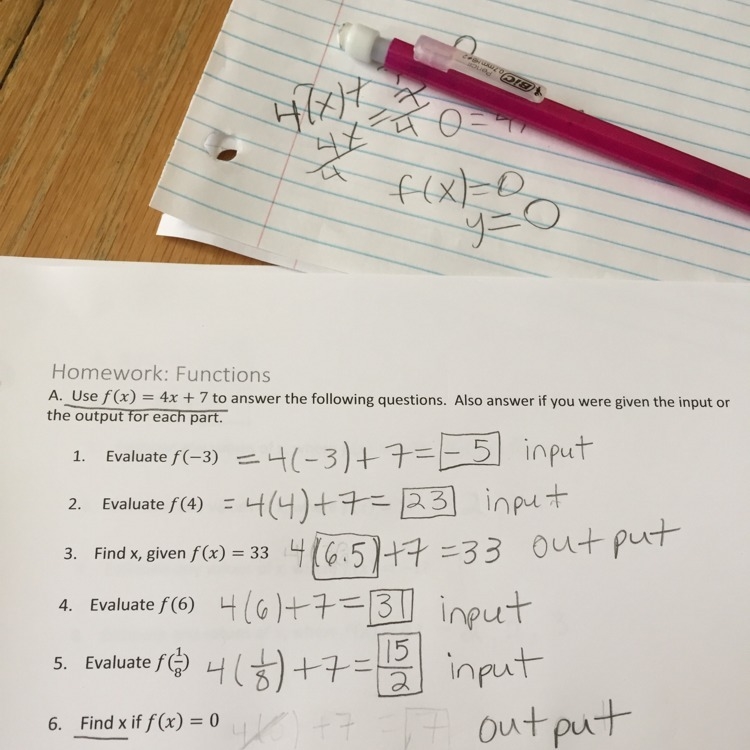 BIC
4(x)+
4x = x
4 4 0 = 4
f(x)=0
y=0
Homework: Functions
A. Use f(x) = 4x + 7 to answer the following questions. Also answer if you were given the input or
the output for each part.
1. Evaluate f(−3) = 4(-3)+7= -5 input
2. Evaluate f(4) = 4(4)+7= 23 input
3. Find x, given f(x) = 33 4(6.5)+7=33 output
4. Evaluate f(6) 4(6)+7=31 input
5. Evaluate f(1/8) 4(1/8)+7= 15/2 input
6. Find x if f(x) = 0 output